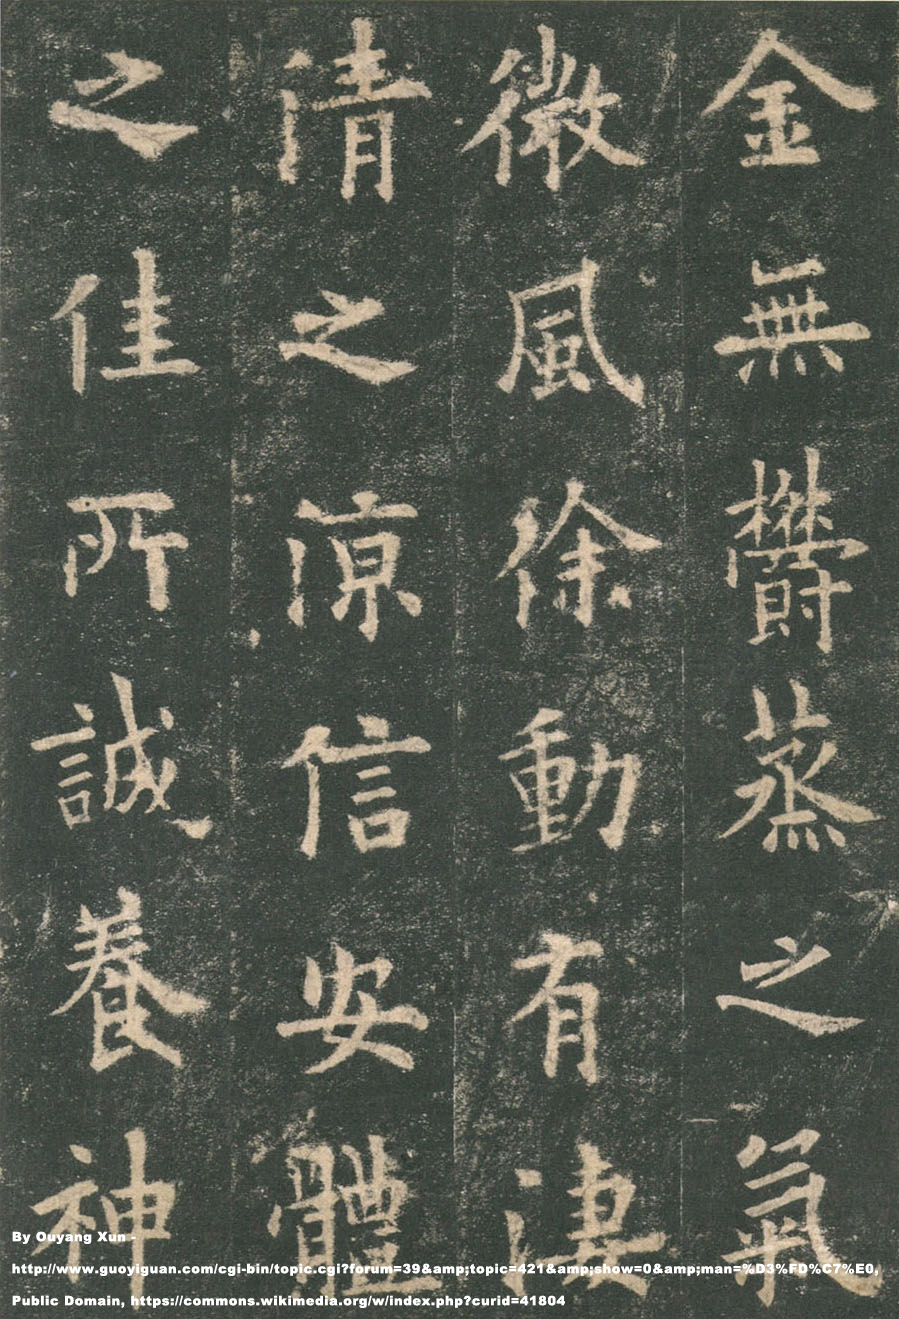 金無欝蒸之氣
微風徐動有淒
清之涼信安體
之佳所誠養神
By Ouyang Xun -
http://www.guoyiguan.com/cgi-bin/topic.cgi?forum=39&amp;topic=421&amp;show=0&amp;man=%D3%FD%C7%E0,
Public Domain, https://commons.wikimedia.org/w/index.php?curid=41804